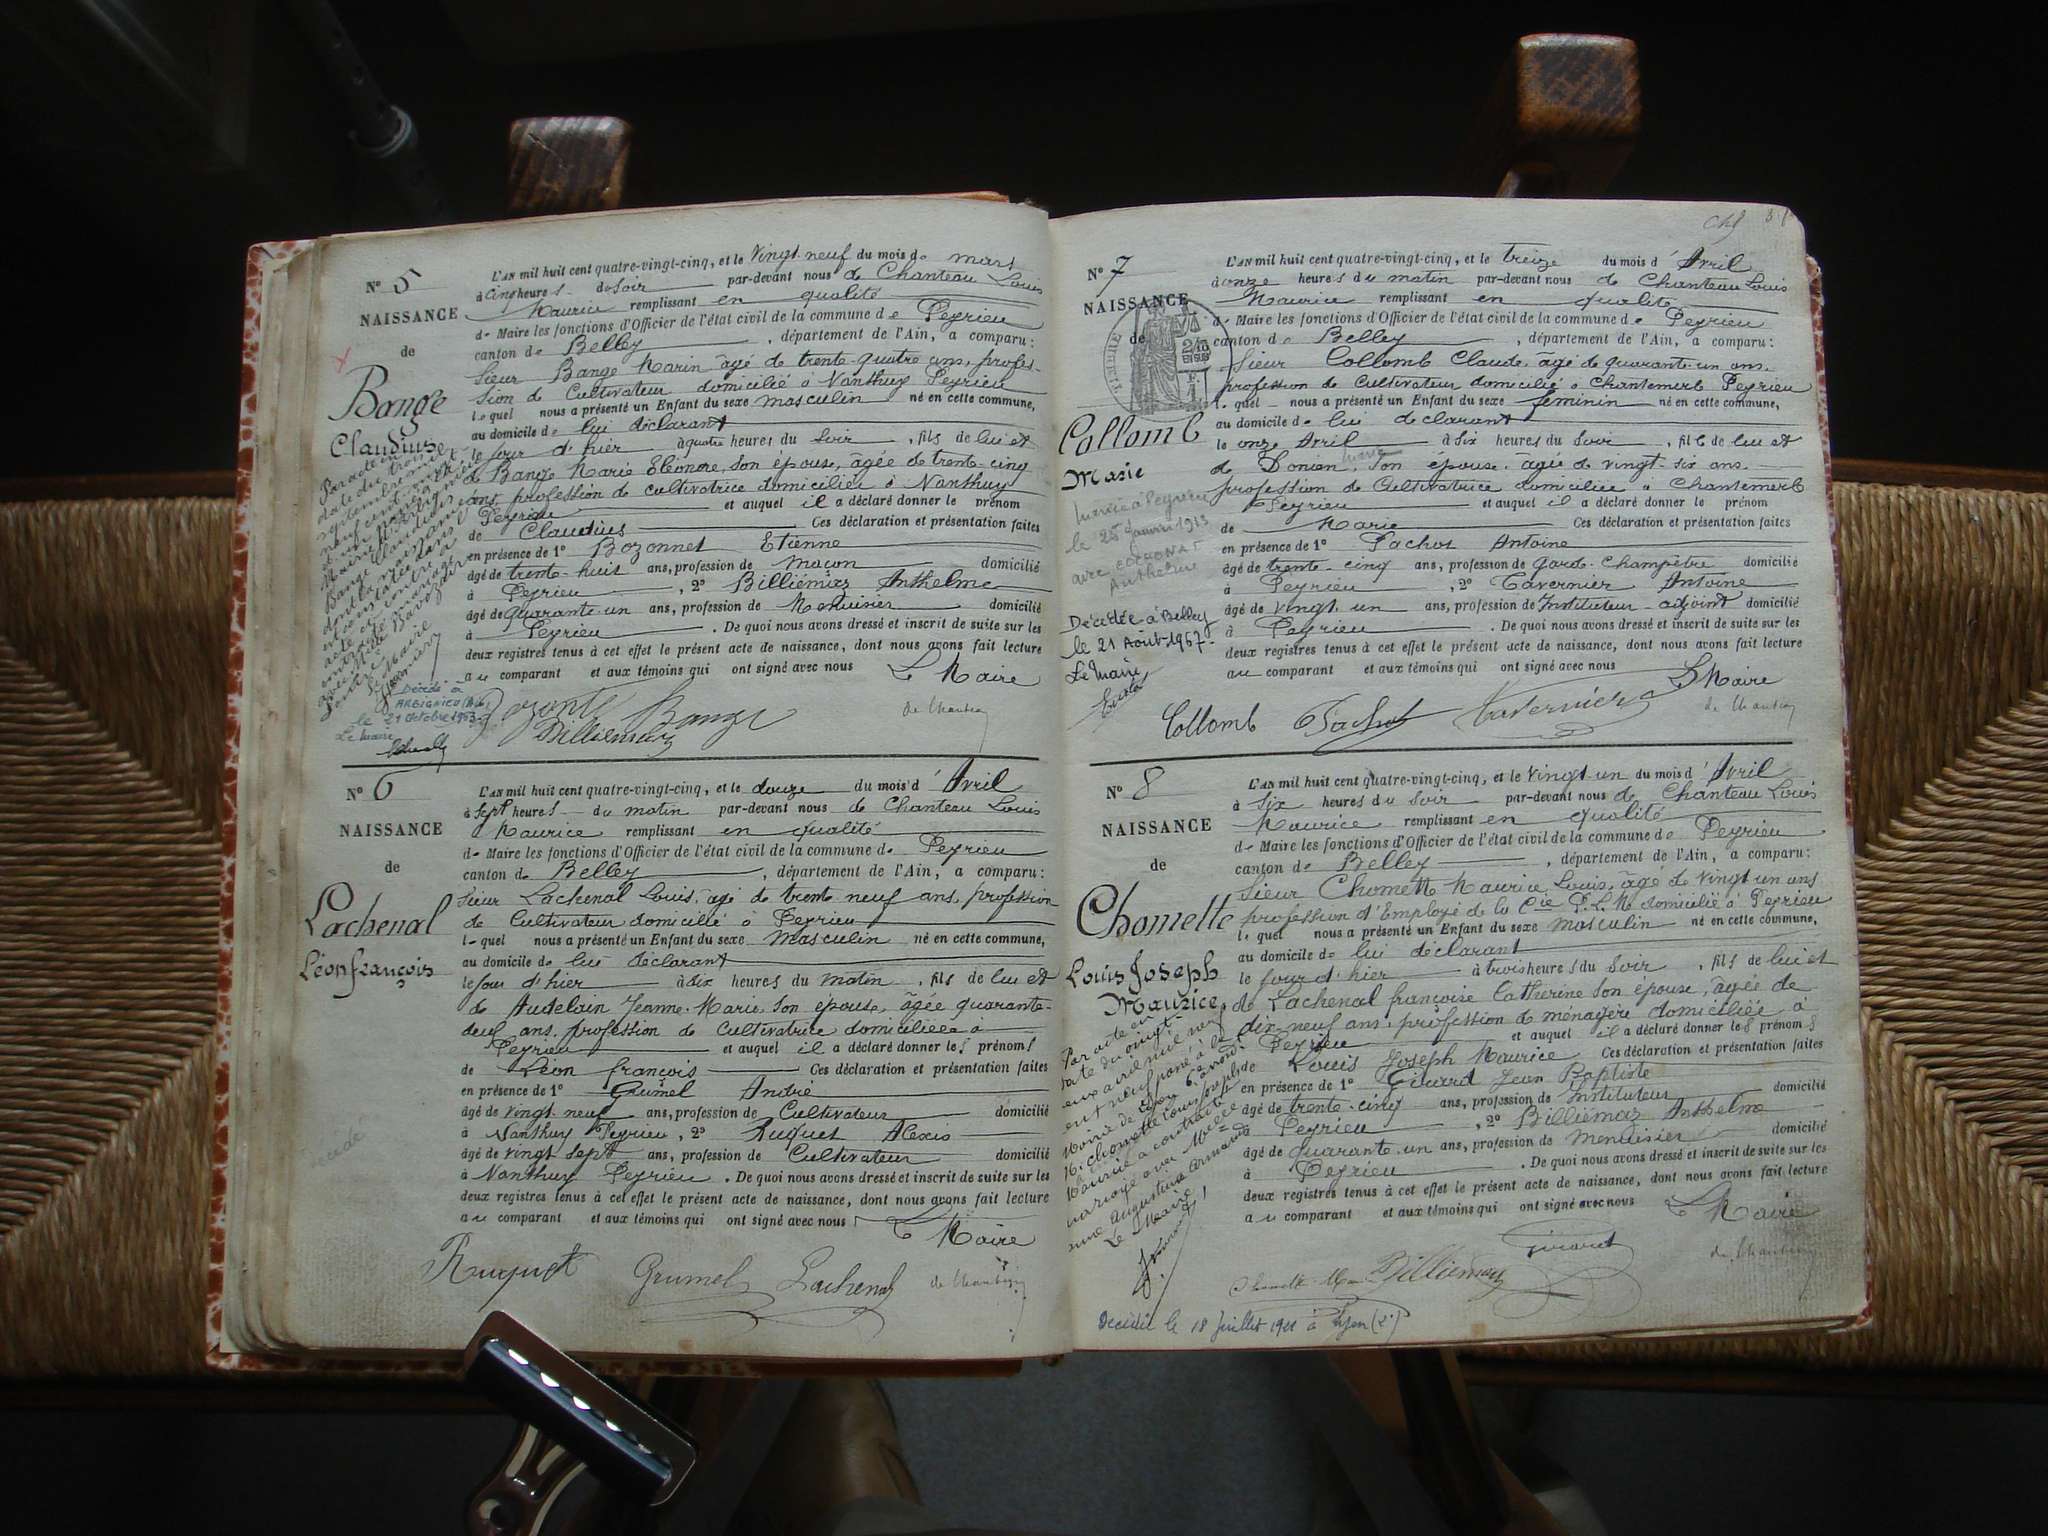 N° 5
NAISSANCE
de
Bange
Claudius
L'AN mil huit cent quatre-vingt-cinq, et le vingt-neuf du mois de mars
à cinq heures du soir par-devant nous de Chanteau Louis
Maurice remplissant en qualité
de Maire les fonctions d'Officier de l'état civil de la commune de Peyrieu
canton de Belley, département de l'Ain, a comparu:
Sieur Bange Marin âgé de trente-quatre ans, profes-
sion de Cultivateur domicilié à Nanthuy Peyrieu
lequel nous a présenté un Enfant du sexe masculin né en cette commune,
au domicile de lui déclarant
le jour d'hier à quatre heures du soir, fils de lui et
de Bange Marie Eléonore, son épouse, âgée de trente-cinq
ans profession de cultivatrice domiciliée à Nanthuy
Peyrieu et auquel il a déclaré donner le prénom
de Claudius Ces déclaration et présentation faites
en présence de 1° Bozonnet Etienne
âgé de trente-huit ans, profession de maçon domicilié
à Peyrieu, 2° Billiémaz Anthelme
âgé de quarante-un ans, profession de Menuisier domicilié
à Peyrieu. De quoi nous avons dressé et inscrit de suite sur les
deux registres tenus à cet effet le présent acte de naissance, dont nous avons fait lecture
au comparant et aux témoins qui ont signé avec nous
Le Maire
Décédé à
ARBIGNIEU (Ain)
le 21 octobre 1953
Le Maire
Billiemaz Bange
N° 6
NAISSANCE
de
Lachenal
Léon françois
L'AN mil huit cent quatre-vingt-cinq, et le douze du mois d'Avril
à sept heures du matin par-devant nous de Chanteau Louis
Maurice remplissant en qualité
de Maire les fonctions d'Officier de l'état civil de la commune de Peyrieu
canton de Belley, département de l'Ain, a comparu:
Sieur Lachenal Louis, âgé de trente neuf ans, profession
de Cultivateur domicilié à Peyrieu
lequel nous a présenté un Enfant du sexe masculin né en cette commune,
au domicile de lui déclarant
le jour d'hier à six heures du matin, fils de lui et
de Audelain Jeanne-Marie, son épouse, âgée quarante-
deux ans, profession de Cultivatrice domiciliée à
Peyrieu et auquel il a déclaré donner les prénoms
de Léon françois Ces déclaration et présentation faites
en présence de 1° Grumel André
âgé de vingt-neuf ans, profession de Cultivateur domicilié
à Nanthuy Peyrieu, 2° Huguet Alexis
âgé de vingt sept ans, profession de Cultivateur domicilié
à Nanthuy Peyrieu. De quoi nous avons dressé et inscrit de suite sur les
deux registres tenus à cet effet le présent acte de naissance, dont nous avons fait lecture
au comparant et aux témoins qui ont signé avec nous
Le Maire
Huguet Grumel Lachenal
N° 7
NAISSANCE
de
TIMBRE
2/10
EN SUS
Collomb
Marie
mariée à Peyrieu
le 25 Janvier 1913
avec COCHONAT
Anthelme
Décédée à Belley
le 21 Août 1967.
Le Maire
L'AN mil huit cent quatre-vingt-cinq, et le treize du mois d'Avril
à onze heures du matin par-devant nous de Chanteau Louis
Maurice remplissant en qualité
de Maire les fonctions d'Officier de l'état civil de la commune de Peyrieu
canton de Belley, département de l'Ain, a comparu:
Sieur Collomb Claude, âgé de quarante-un ans,
profession de Cultivateur domicilié à Chantemerle Peyrieu
lequel nous a présenté un Enfant du sexe feminin né en cette commune,
au domicile de lui déclarant
le onze Avril à six heures du soir, fille de lui et
de Donien Marie, son épouse, âgée de vingt-six ans
profession de Cultivatrice domiciliée à Chantemerle
Peyrieu et auquel il a déclaré donner le prénom
de Marie Ces déclaration et présentation faites
en présence de 1° Pachot Antoine
âgé de trente-cinq ans, profession de garde-champêtre domicilié
à Peyrieu, 2° Tavernier Antoine
âgé de vingt-un ans, profession de Instituteur-adjoint domicilié
à Peyrieu. De quoi nous avons dressé et inscrit de suite sur les
deux registres tenus à cet effet le présent acte de naissance, dont nous avons fait lecture
au comparant et aux témoins qui ont signé avec nous
Le Maire
Collomb Pachot Tavernier
N° 8
NAISSANCE
de
Chomette
Louis Joseph
Maurice
L'AN mil huit cent quatre-vingt-cinq, et le vingt-un du mois d'Avril
à six heures du soir par-devant nous de Chanteau Louis
Maurice remplissant en qualité
de Maire les fonctions d'Officier de l'état civil de la commune de Peyrieu
canton de Belley, département de l'Ain, a comparu:
Sieur Chomette Maurice Louis, âgé de vingt un ans
profession d'Employé de la Cie P.L.M. domicilié à Peyrieu
lequel nous a présenté un Enfant du sexe masculin né en cette commune,
au domicile de lui déclarant
le jour d'hier à trois heures du soir, fils de lui et
de Lachenal françoise Catherine son épouse, âgée de
dix neuf ans, profession de ménagère domiciliée à
Peyrieu et auquel il a déclaré donner les prénoms
de Louis Joseph Maurice Ces déclaration et présentation faites
en présence de 1° Girard Jean Baptiste
âgé de trente-cinq ans, profession de Instituteur domicilié
à Peyrieu, 2° Billiémaz Anthelme
âgé de quarante-un ans, profession de Menuisier domicilié
à Peyrieu. De quoi nous avons dressé et inscrit de suite sur les
deux registres tenus à cet effet le présent acte de naissance, dont nous avons fait lecture
au comparant et aux témoins qui ont signé avec nous
Le Maire
Girard
Billiemaz
Décédé le 18 Juillet à Lyon